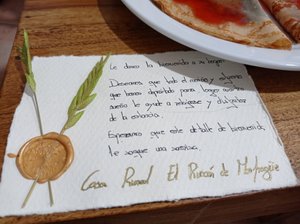 Le damos la bienvenida a su hogar.
Deseamos que todo el cariño y esfuerzo
que hemos depositado para lograr nuestro
sueño le ayude a relajarse y disfrutar
de la estancia.
Esperamos que este detalle de bienvenida
le saque una sonrisa.
Casa Rural El Rincón de Monfragüe